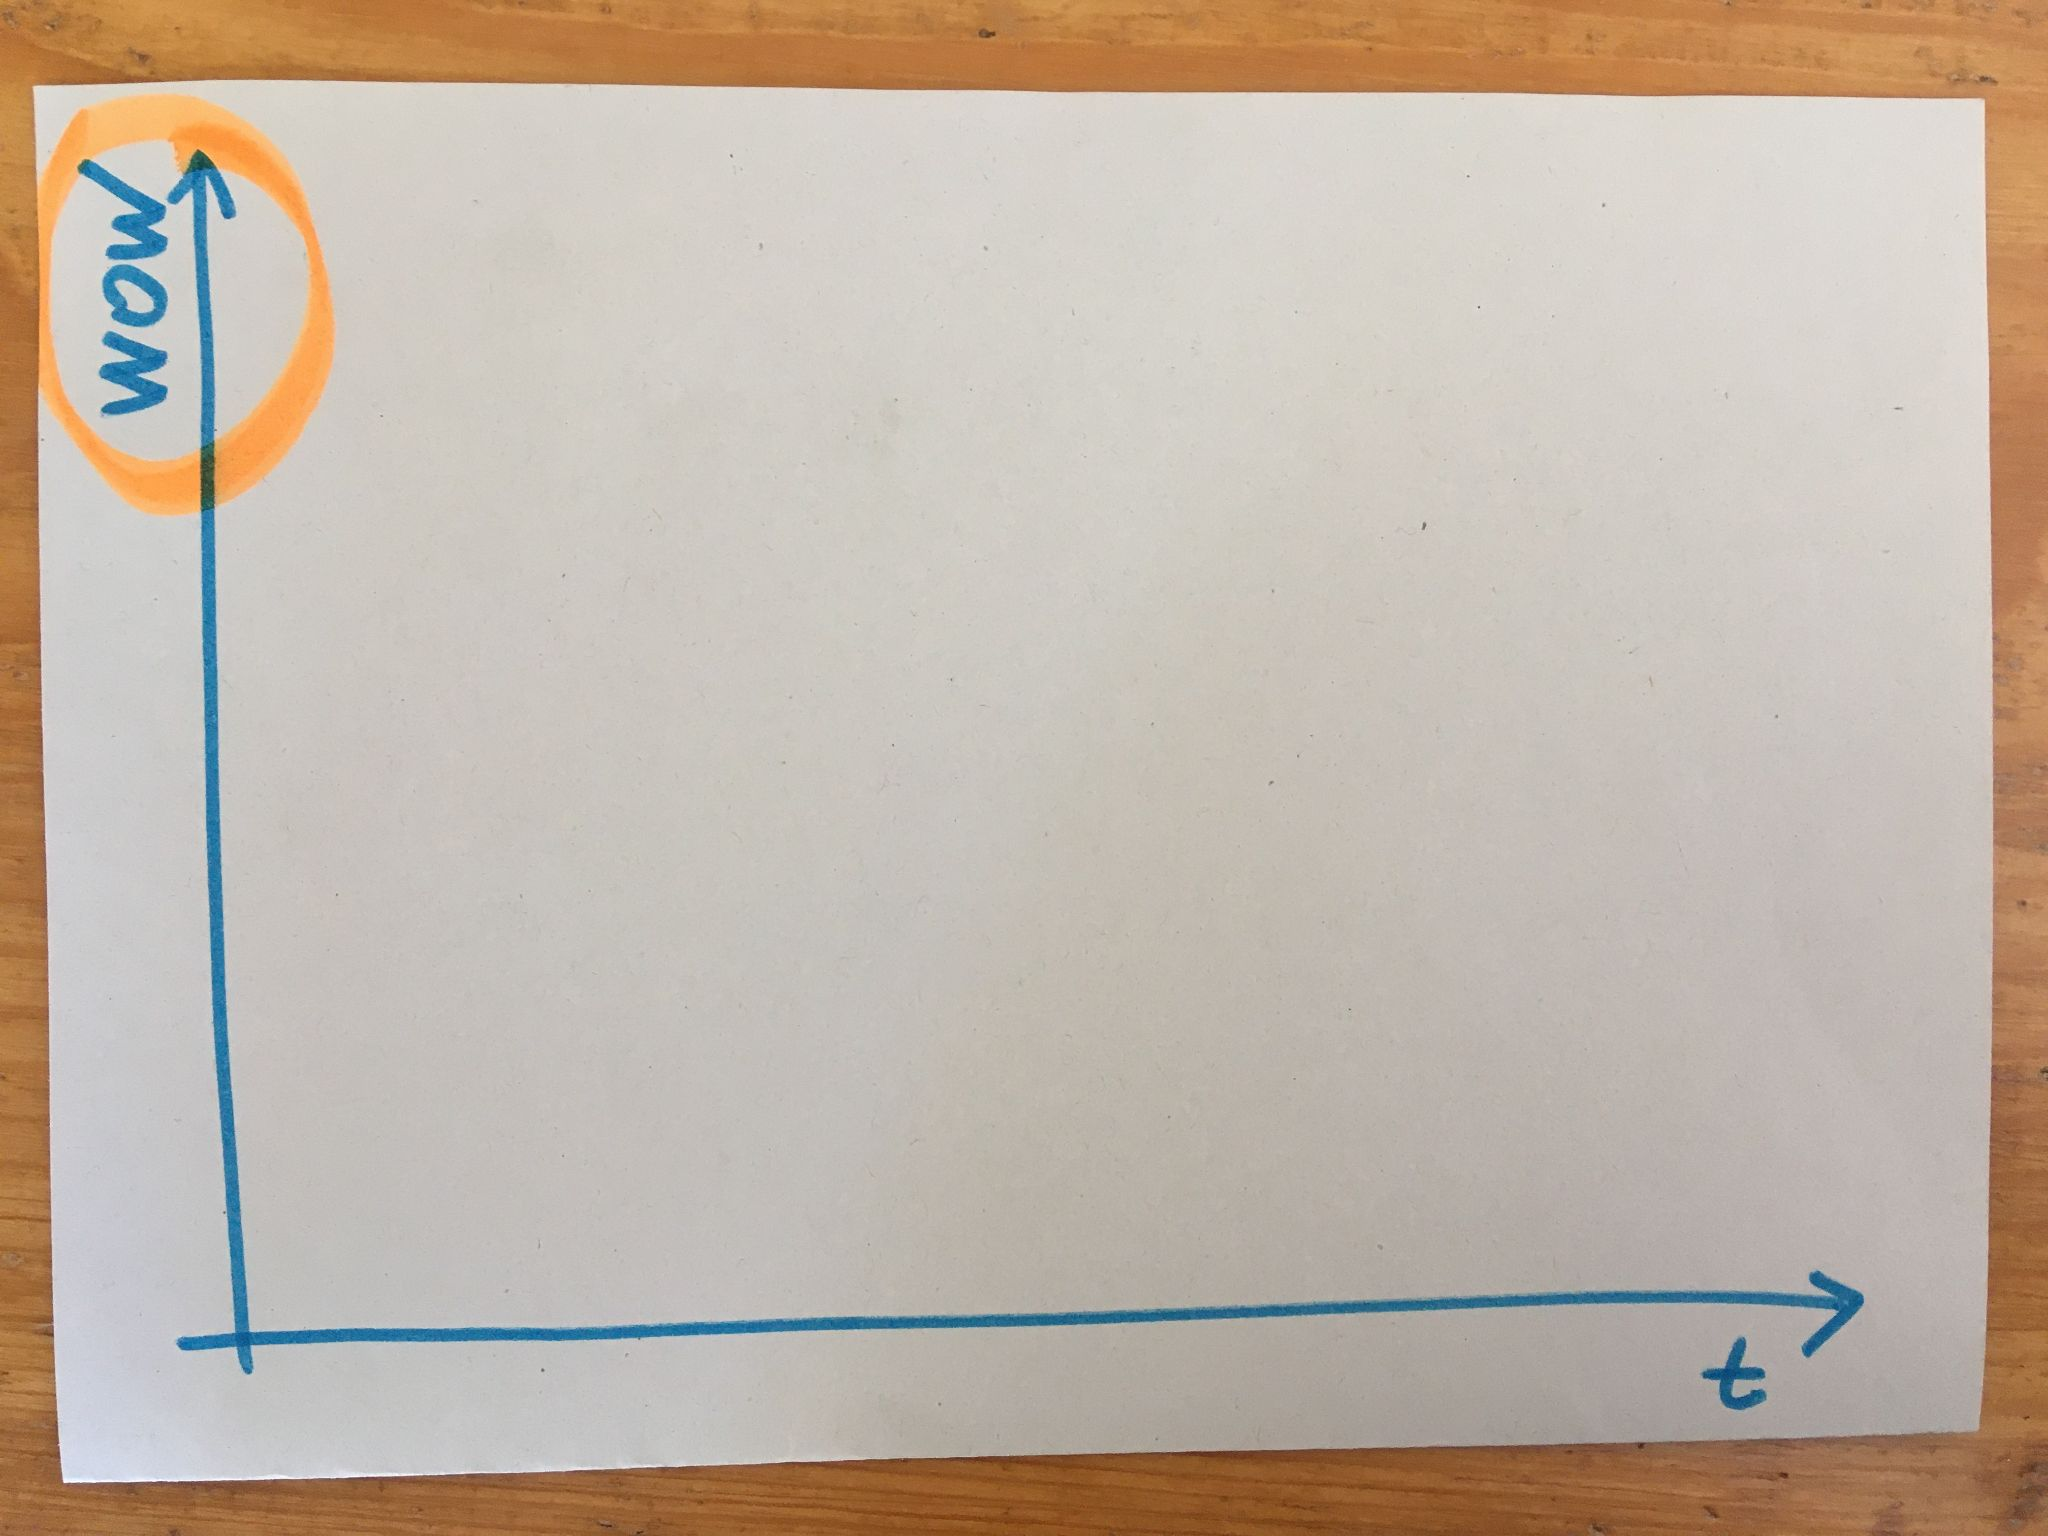 wow
t